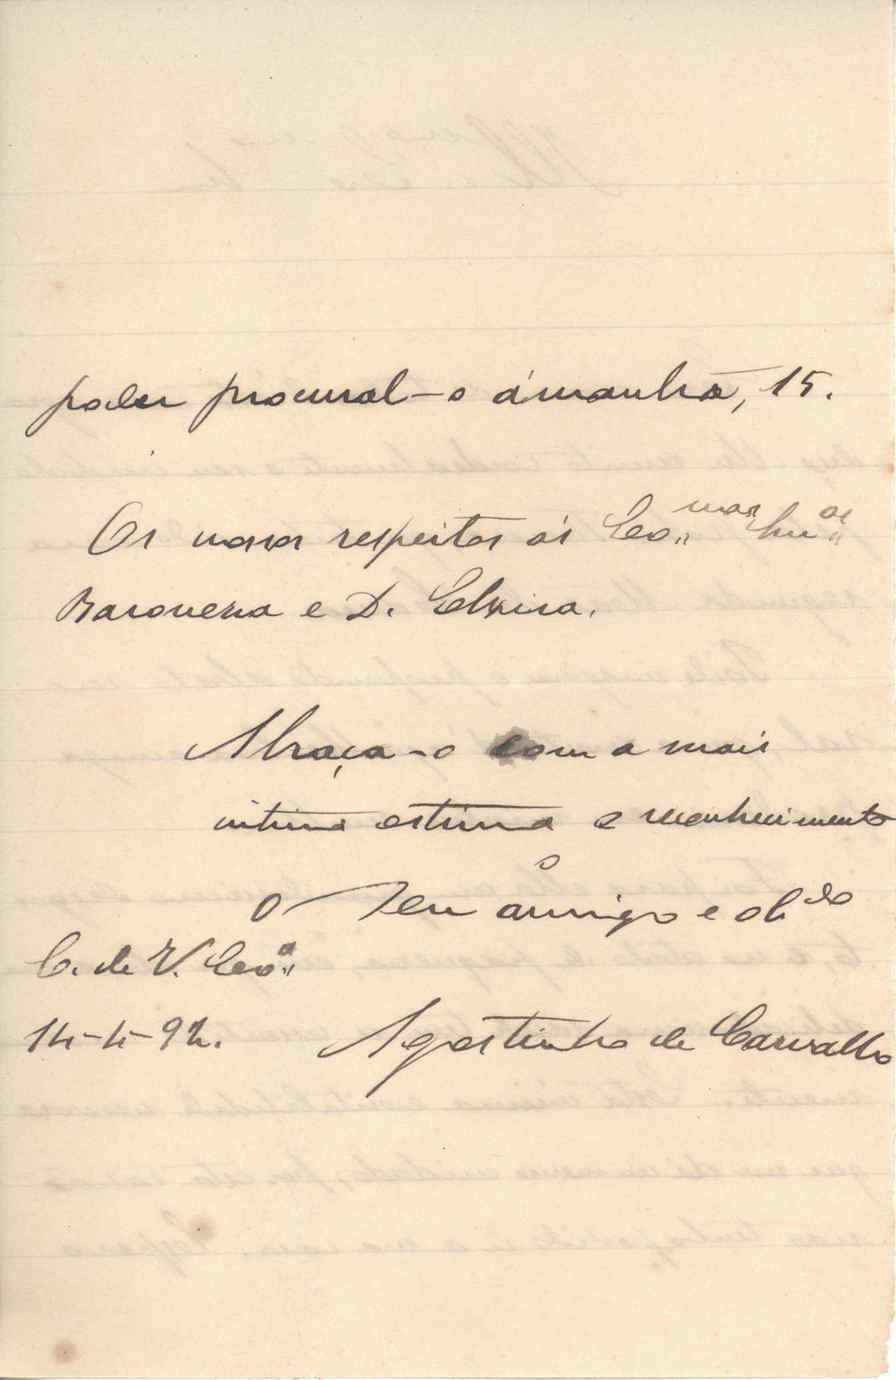 poder procural-o ámanhã, 15.
Os nossos respeitos ás Ex.mas Snr.as
Baroneza e D. Elvira.
Abraça-o com a mais
intima estima e reconhecimento
O Seu amigo e ob.do
C. de V. Ex.a
14-4-92.
Agostinho de Carvalho